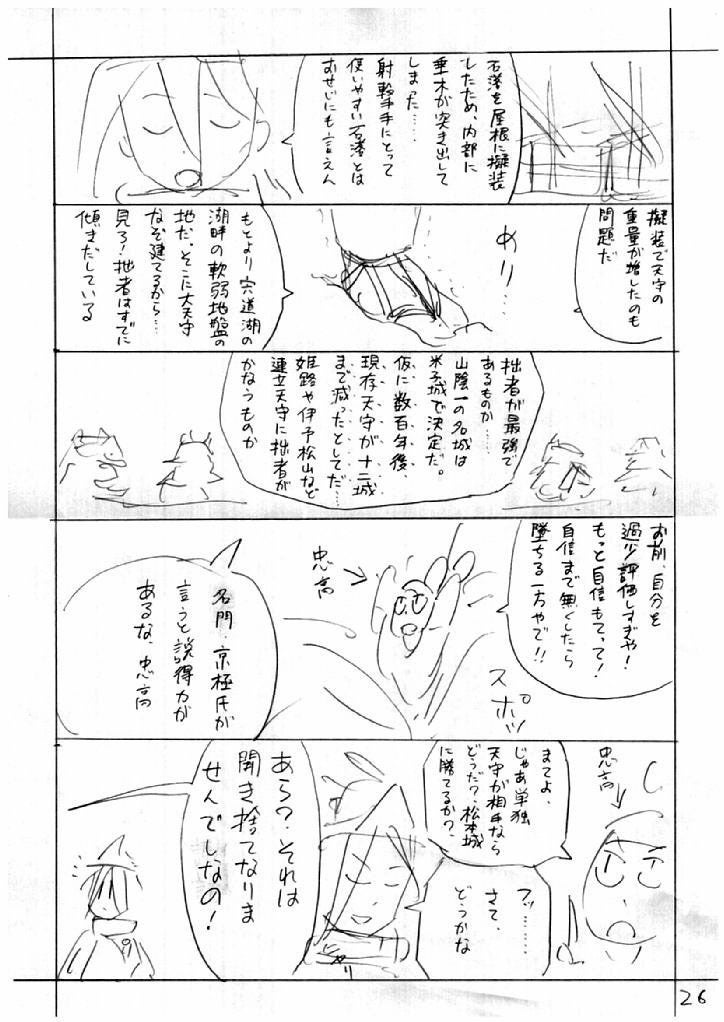 石落を屋根に擬装
したため、内部に
垂木が突き出して
しまった……
射撃手にとって
使いやすい石落とは
おせじにも言えん
擬装で天守の
重量が増したのも
問題だ
めり…
もとより宍道湖の
湖畔の軟弱地盤の
地だ。そこに大天守
なぞ建てるから…
見ろ!拙者はすでに
傾きだしている
拙者が最強で
あるものか……
山陰一の名城は
米子城で決定だ。
仮に数百年後、
現存天守が十二城
まで減ったとしてだ…
姫路や伊予松山など
連立天守に拙者が
かなうものか
お前、自分を
過少評価しすぎや!
もっと自信もてって!
自信まで無くしたら
墜ちる一方やで!!
スポッ
忠高
名門・京極氏が
言うと説得力が
あるな、忠高
忠高
まてよ、
じゃあ単独
天守が相手なら
どうだ?松本城
に勝てるか?
フッ……
さて、
どうかな
ニヤリ
あら?それは
聞き捨てなりま
せんでしなの!
26